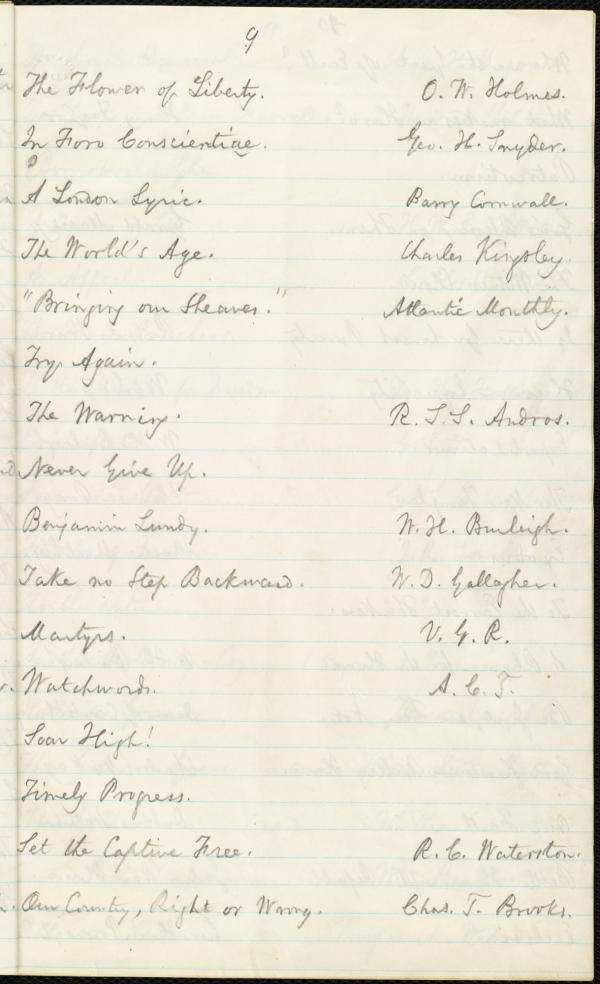 9
The Flower of Liberty. O. W. Holmes.
In Foro Conscientiae. Geo. H. Snyder.
A London Lyric. Barry Cornwall.
The World's Age. Charles Kingsley.
"Bringing our Sheaves." Atlantic Monthly.
Try Again.
The Warning. R. S. S. Andros.
Never Give Up.
Benjamin Lundy. W. H. Burleigh.
Take no Step Backward. W. D. Gallagher.
Martyrs. V. G. R.
Watchwords. A. C. T.
Soar High!
Timely Progress.
Set the Captive Free. R. C. Waterston.
Our Country, Right or Wrong. Chas. T. Brooks.